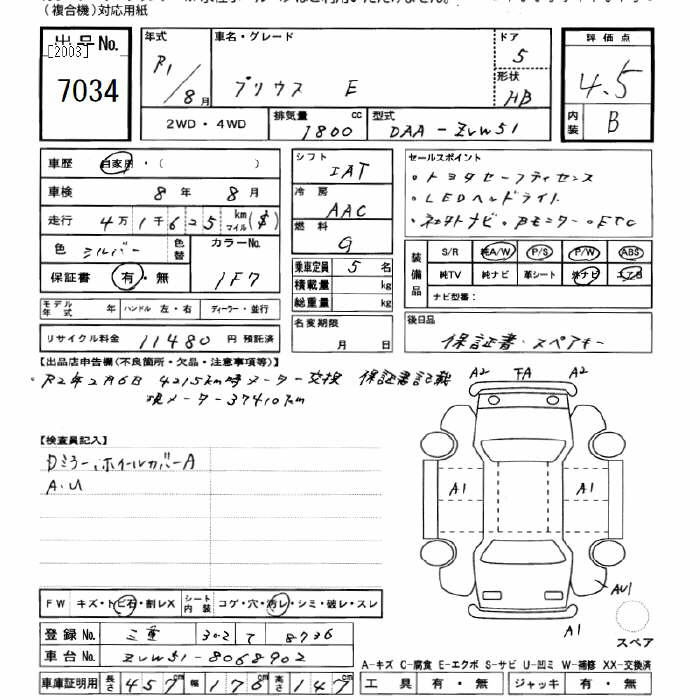 (複合機)対応用紙
出品No.
[2003]
7034
年式 R1/8月
車名・グレード プリウス E
ドア 5
形状 HB
評価点 4.5
内装 B
2WD・4WD
排気量 1800 cc
型式 DAA-ZVW51
車歴 自家用・( )
車検 8年 8月
走行 4万1千625 km マイル($)
色 シルバー
色替
カラーNo. 1F7
保証書 有・無
モデル年式 年 ハンドル 左・右 ディーラー・並行
リサイクル料金 11480 円 預託済
シフト IAT
冷房 AAC
燃料 G
乗車定員 5名
積載量 kg
総重量 kg
名変期限 月 日
セールスポイント
・トヨタセーフティセンス
・LEDヘッドライト
・ネットナビ・Bモニター・ETC
装備品
S/R 純A/W P/S P/W ABS
純TV 純ナビ 革シート 社ナビ エアB
ナビ型番:
後日品
保証書・スペアキー
【出品店申告欄(不良箇所・欠品・注意事項等)】
・R2年2月6日 4215km時メーター交換 保証書記載
現メーター37410km
【検査員記入】
Dミラー、ホイールカバーA
A・U
A2 FA A2
A1 A1
AU1
A1
スペア
FW キズ・トビ石・割レX シート内装 コゲ・穴・汚レ・シミ・破レ・スレ
登録No. 三重 302 て 8736
車台No. ZVW51-8068902
A-キズ C-腐食 E-エクボ S-サビ U-凹ミ W-補修 XX-交換済
車庫証明用 長さ 457cm 幅 176cm 高さ 147cm
工具 有・無 ジャッキ 有・無